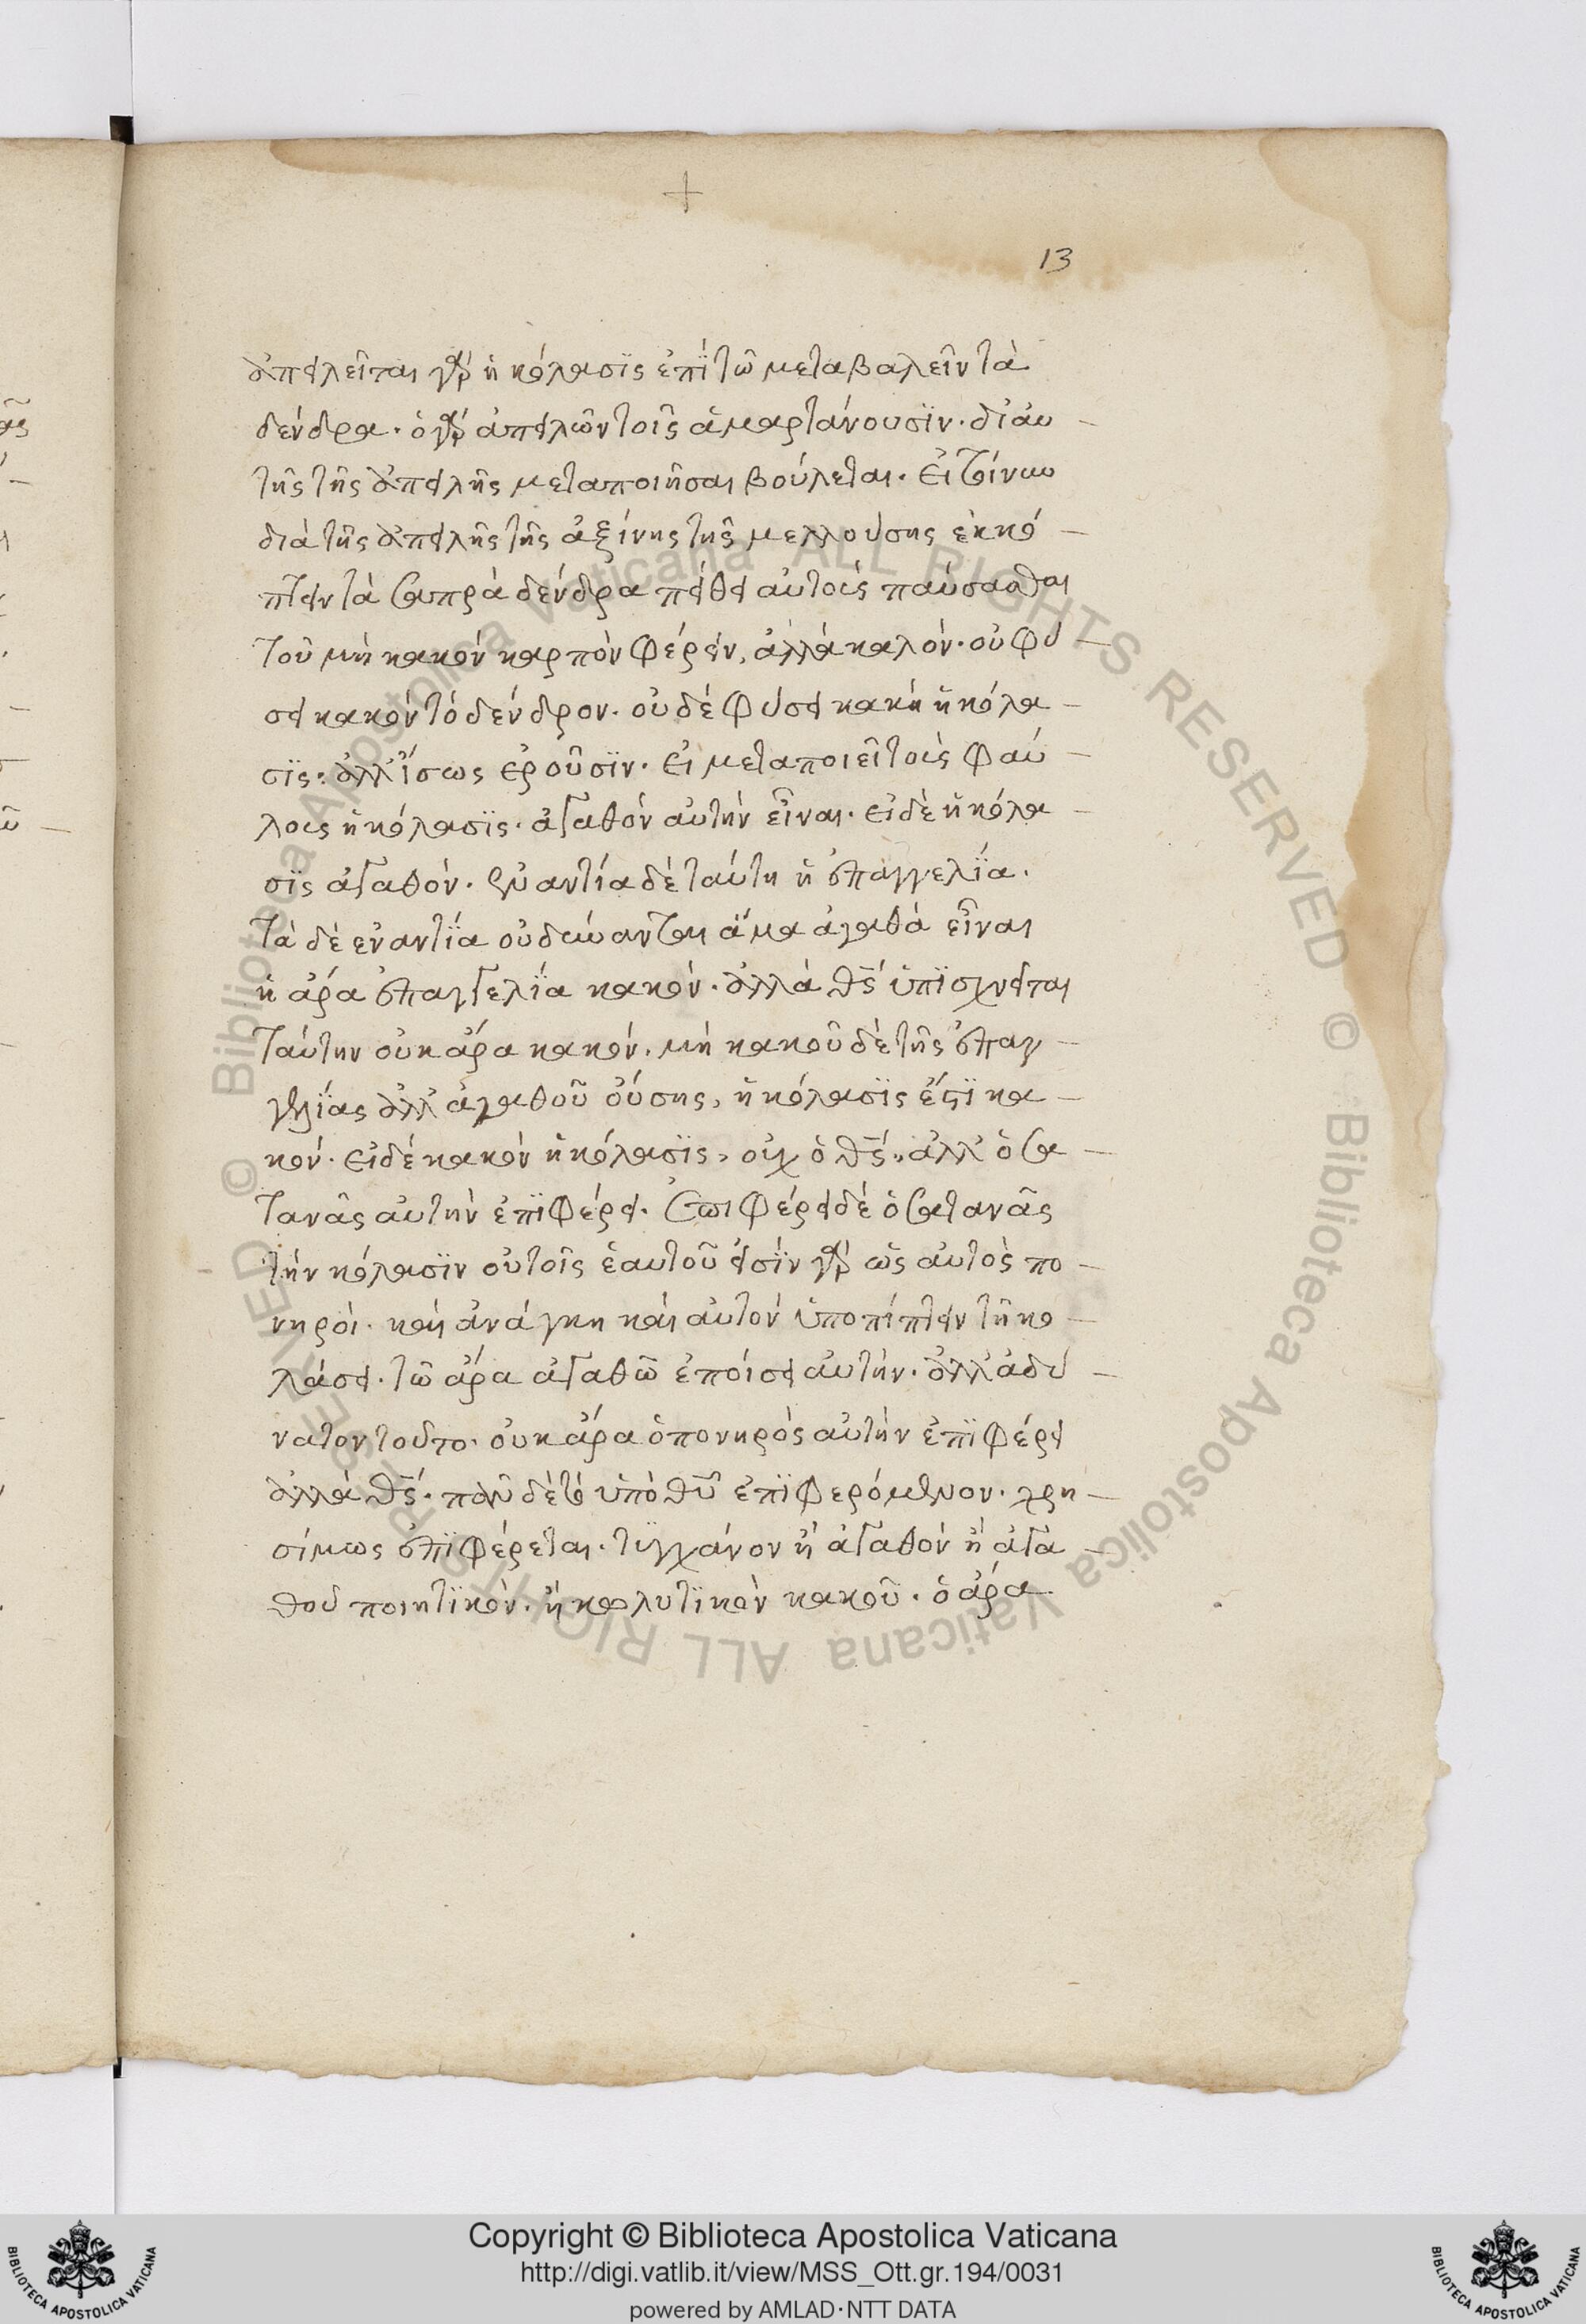 +
13
ἀπειλεῖται γὰρ ἡ κόλασϊς ἐπῒ τῶ μεταβαλεῖν τὰ
δένδρα· ὁ γὰρ ἀπειλῶν τοῖς ἁμαρτάνουσϊν· δι' αυ-
τῆς τῆς ἀπειλῆς μεταποιῆσαι βούλεται. εἰ τοίνυν
διὰ τῆς ἀπειλῆς τῆς ἀξίνης τῆς μελλούσης ἐκκό-
πτειν τὰ σαπρὰ δένδρα πείθει αὐτοὺς παύσασθαι
τοῦ μὴ κακὸν καρπὸν φέρειν, ἀλλὰ καλόν· οὐ φύ-
σει κακὸν τὸ δένδρον· οὐδὲ φύσει κακὴ ἡ κόλα-
σϊς· ἀλλ' ἴσως ἐροῦσϊν· εἰ μεταποιεῖ τοὺς φαύ-
λους ἡ κόλασϊς· ἀγαθὸν αὐτὴν εἶναι· εἰ δὲ ἡ κόλα-
σϊς ἀγαθόν· ἐναντία δὲ ταύτη ἡ ἐπαγγελΐα.
τὰ δὲ ἐναντΐα οὐ δύνανται ἅμα ἀγαθὰ εἶναι
ἡ ἄρα ἐπαγγελΐα κακόν· ἀλλὰ θς ὑπϊσχνεῖται
ταύτην οὐκ ἄρα κακόν· μὴ κακοῦ δὲ τῆς ἐπαγ-
γελΐας ἀλλ' ἀγαθοῦ οὔσης, ἡ κόλασϊς ἐστϊ κα-
κόν· εἰ δὲ κακὸν ἡ κόλασϊς, οὐχ ὁ θς, ἀλλ' ὁ σα-
τανᾶς αὐτὴν ἐπϊφέρει. ἐπιφέρει δὲ ὁ σατανᾶς
τὴν κόλασϊν οὐ τοῖς ἑαυτοῦ εἰσϊν γὰρ ὡς αὐτὸς πο-
νηροὶ· καὶ ἀνάγκη καὶ αὐτὸν ὑποπίπτειν τῆ κο-
λάσει· τῶ ἄρα ἀγαθῶ ἐποίσει αὐτὴν· ἀλλ' ἀδύ-
νατον τοῦτο· οὐκ ἄρα ὁ πονηρὸς αὐτὴν ἐπϊφέρει
ἀλλὰ θς· πᾶν δὲ τὸ ὑπὸ θυ ἐπϊφερόμενον· χρη-
σίμως ἐπϊφέρεται· τυγχάνον ἢ ἀγαθὸν ἢ ἀγα-
θοῦ ποιητϊκὸν· ἢ κωλυτϊκὸν κακοῦ· ὁ ἄρα
Copyright © Biblioteca Apostolica Vaticana
http://digi.vatlib.it/view/MSS_Ott.gr.194/0031
powered by AMLAD·NTT DATA
BIBLIOTECA APOSTOLICA VATICANA
BIBLIOTECA APOSTOLICA VATICANA
© Biblioteca Apostolica Vaticana ALL RIGHTS RESERVED © Biblioteca Apostolica Vaticana ALL RIGHTS RESERVED